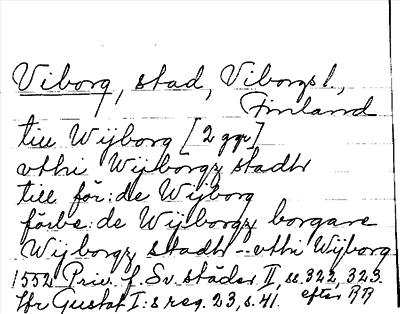 Viborg, stad, Viborgs l.,
Finland
till Wijborg [2 ggr]
vthi Wijborgz stadh
till för:de Wijborg
förbe:de Wijborgz borgare
Wijborgz stadh - vthi Wijborg
1552 Priv. f. Sv. städer II, ss. 322, 323.
Jfr Gustaf I:s reg. 23, s. 41. efter RR